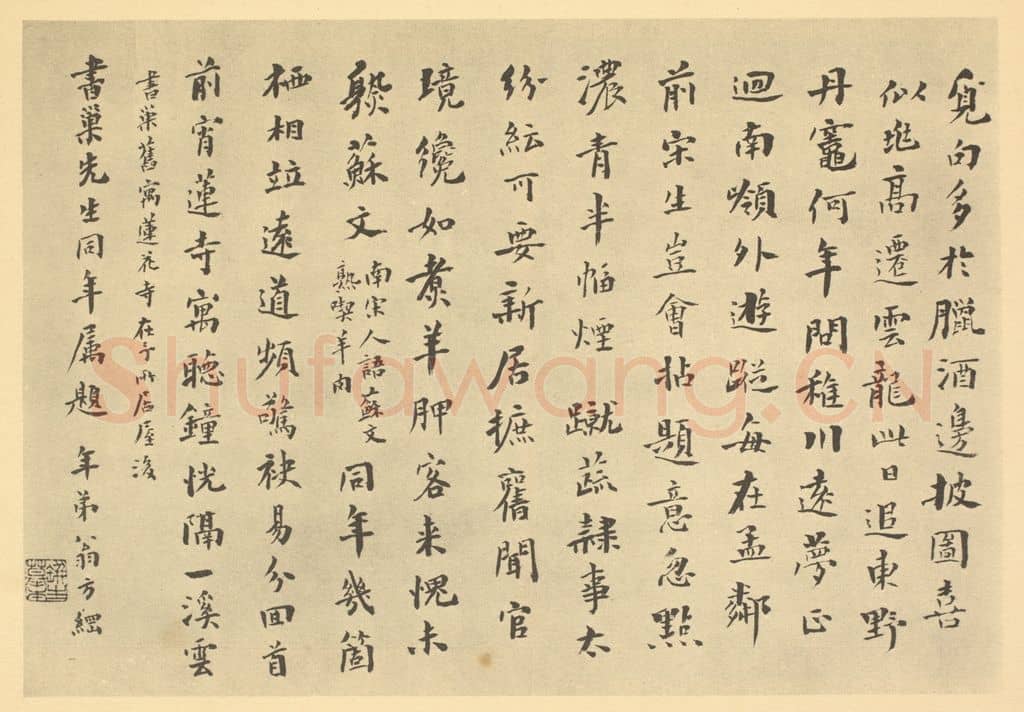 覓句多於臘酒邊披圖喜
似跳高遷雲龍此日追東野
丹竈何年問稚川遠夢正
迴南嶺外遊蹤每在孟鄰
前宋生豈會拈題意忽點
濃青半幅煙 蹴蔬隸事太
紛紜可要新居摭舊聞官
境纔如煮羊胛客來愧未
爇蘇文 南宋人語蘇文
熟喫羊肉 同年幾箇
栖相竝遠道頻驚袂易分回首
前宵蓮寺寓聽鐘恍隔一溪雲
書巢舊寓蓮花寺在予所居屋後
書巢先生同年属題 年弟翁方綱
Shufawang.CN